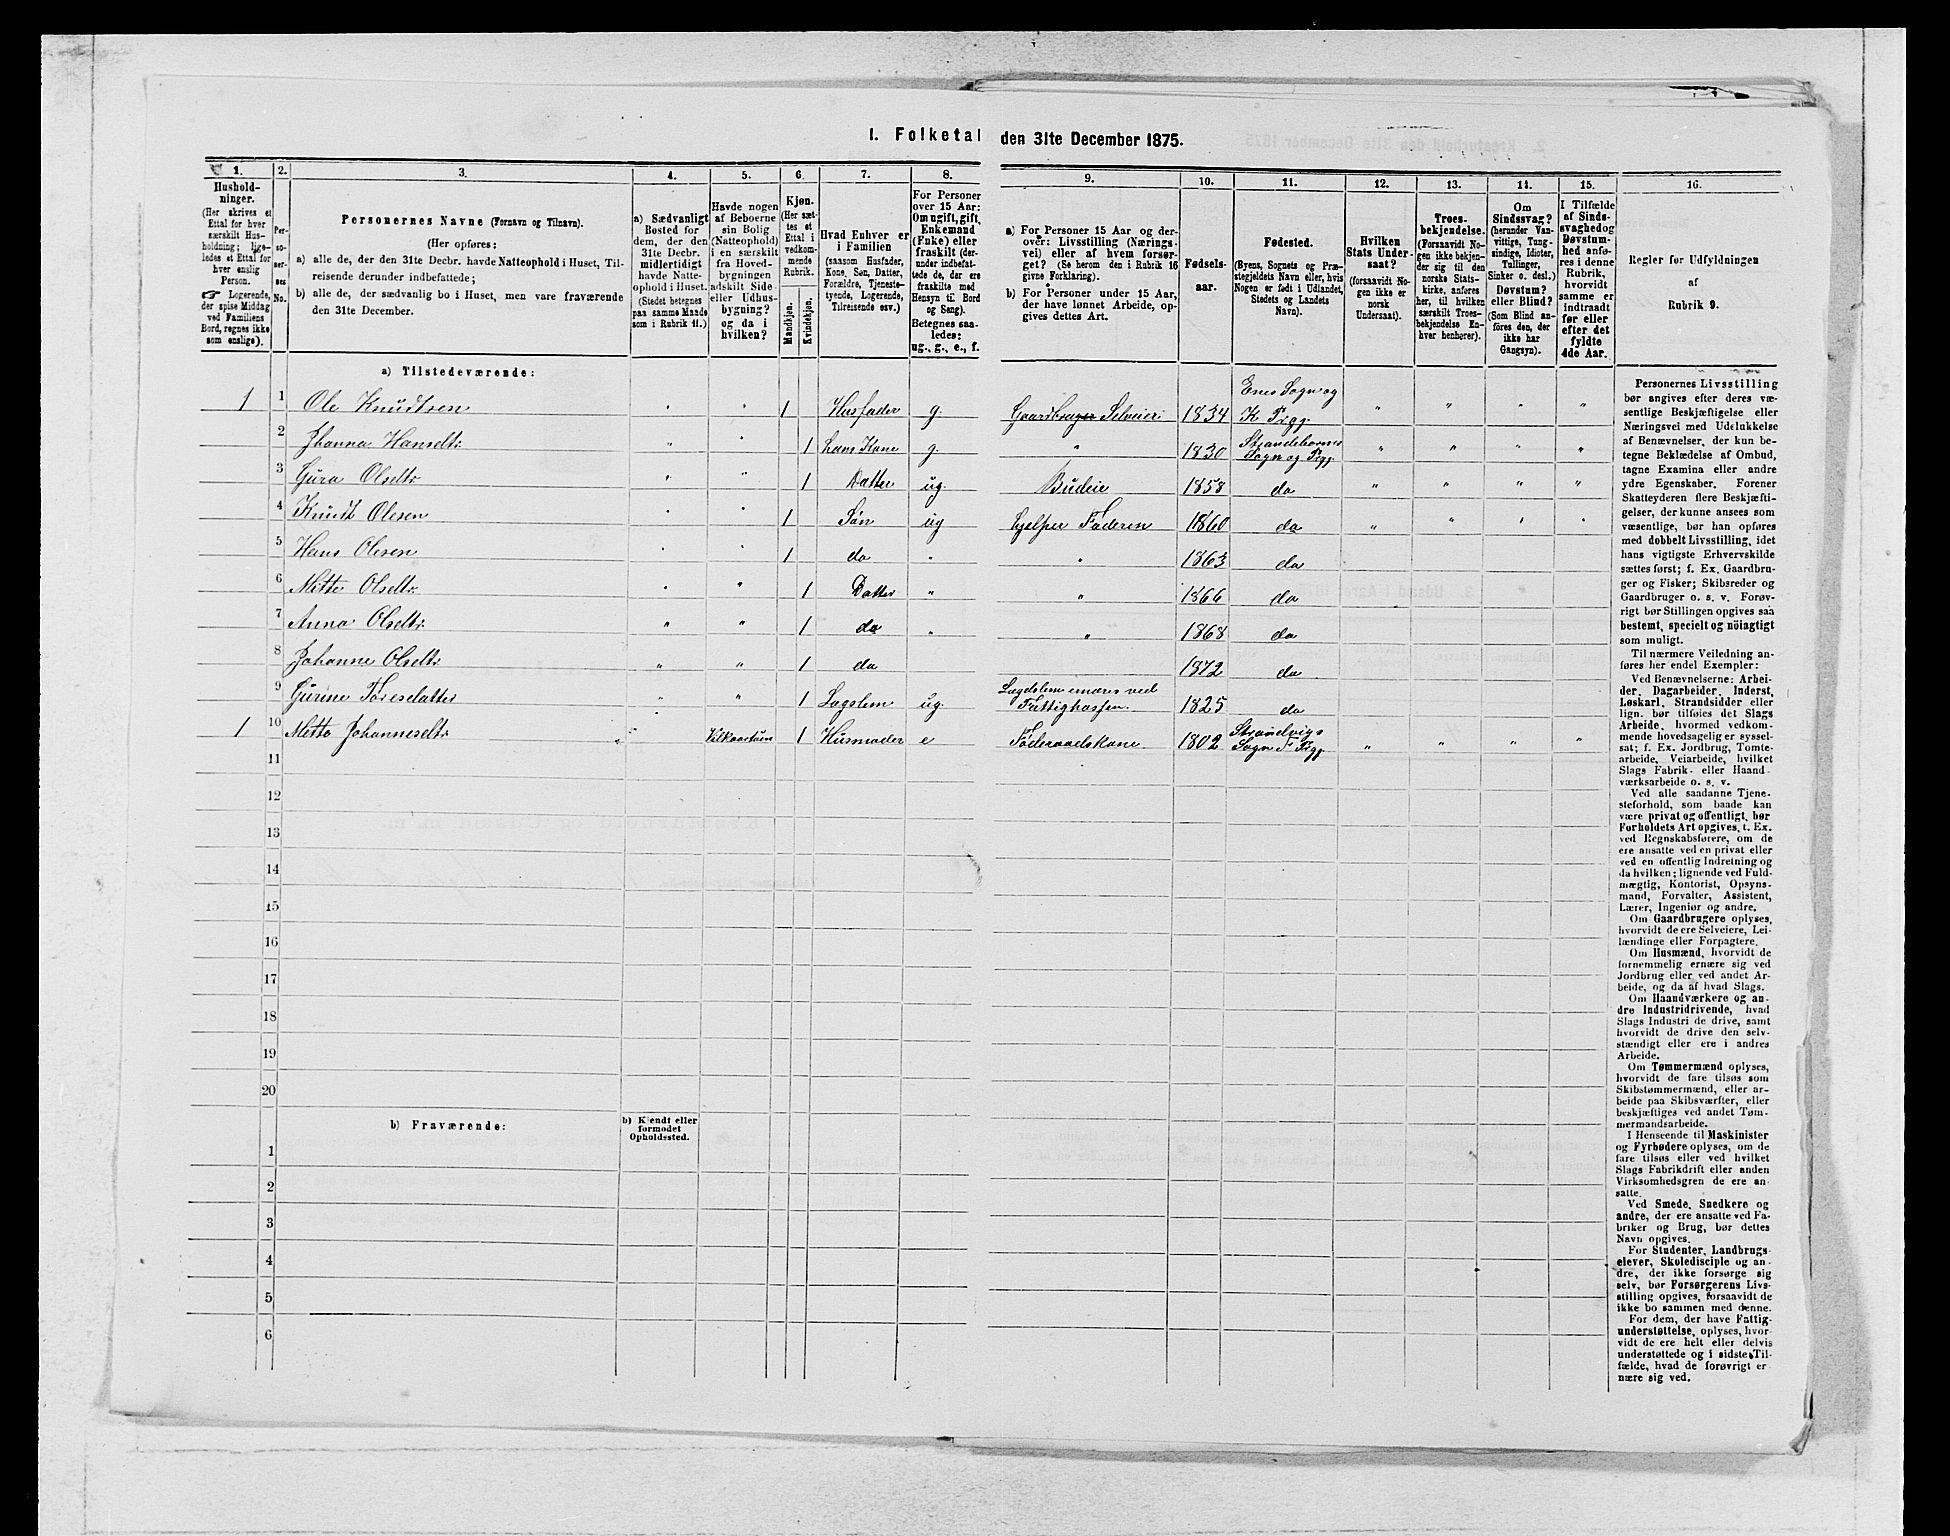 I. Folketal den 31te December 1875.
1.
2.
3.
4.
5.
6.
7.
8.
9.
10.
11.
12.
13.
14.
15.
16.
Hushold-
ninger.
(Her skrives et
Ettal for hver
særskilt Hus-
holdning; lige-
ledes et Ettal for
hver enslig
Person.
☞ Logerende,
der spise Middag
ved Familiens
Bord, regnes ikke
som enslige).
Per-
so-
ner-
nes
No.
Personernes Navne (Fornavn og Tilnavn).
(Her opføres:
a) alle de, der den 31te Decbr. havde Natteophold i Huset, Til-
reisende derunder indbefattede;
b) alle de, der sædvanlig bo i Huset, men vare fraværende
den 31te December.
a) Sædvanligt
Bosted for
dem, der den
31te Decbr.
midlertidigt
havde Natte-
ophold i Huset.
(Stedet betegnes
paa samme Maade
som i Rubrik 11.)
Havde nogen
af Beboerne
sin Bolig
(Natteophold)
i en særskilt
fra Hoved-
bygningen
adskilt Side-
eller Udhus-
bygning?
og da i
hvilken?
Kjøn.
(Her sæt-
tes et
Ettal i
vedkom-
mende
Rubrik.
Mandkjøn.
Kvindekjøn.
Hvad Enhver er
i Familien
(saasom Husfader,
Kone, Søn, Datter,
Forældre, Tjeneste-
tyende, Logerende,
Tilreisende osv.)
For Personer
over 15 Aar:
Om ugift, gift,
Enkemand
(Enke) eller
fraskilt (der-
under indbefat-
tede de, der ere
fraskilte med
Hensyn til Bord
og Seng).
Betegnes saa-
ledes:
ug., g., e., f.
a) For Personer 15 Aar og der-
over: Livsstilling (Nærings-
vei) eller af hvem forsør-
get? (Se herom den i Rubrik 16
givne Forklaring).
b) For Personer under 15 Aar,
der have lønnet Arbeide, op-
gives dettes Art.
Fødsels-
aar.
Fødested.
(Byens, Sognets og Præ-
stegjeldets Navn eller, hvis
Nogen er født i Udlandet,
Stedets og Landets
Navn).
Hvilken
Stats Under-
saat?
(forsaavidt No-
gen ikke er
norsk
Undersaat).
Troes-
bekjendelse.
(Forsaavidt No-
gen ikke bekjen-
der sig til den
norske Stats-
kirke, anføres
her, til hvilken
særskilt Troes-
bekjendelse En-
hver henhører).
Om
Sindssvag?
(herunder Van-
vittige, Tung-
sindige, Idioter,
Tullinger,
Sinker o. desl.)
Døvstum?
eller Blind?
(Som Blind an-
føres den, der
ikke har
Gangsyn).
I Tilfælde
af Sinds-
svaghed og
Døvstum-
hed anfø-
res i denne
Rubrik,
hvorvidt
samme er
indtraadt
før eller
efter det
fyldte
4de Aar.
Regler for Udfyldningen
af
Rubrik 9.
a) Tilstedeværende:
1 1 Ole Knudtsen " " 1 Husfader g. Gaardbruger Selveier 1834 Enes Sogn og K Prgj. " " " "
2 Johanna Hansdtr " " 1 hans Kone g. " 1830 Strandebarms Sogn og Prgj. " " " "
3 Gura Olsdtr " " 1 Datter ug Budeie 1858 do " " " "
4 Knudt Olesen " " 1 Søn ug hjelper Faderen 1860 do " " " "
5 Hans Olesen " " 1 do " " 1863 do
6 Mette Olsdtr " " 1 Datter " " 1866 do
7 Anna Olsdtr " " 1 do " " 1868 do
8 Johanne Olsdtr " " 1 do 1872 do
9 Gurine Toresdatter " " 1 Lægslem ug. Lægdslem ernæres ved Fattigkassen. 1825 do
1 10 Mette Johannesdtr " 1 Husmoder e Føderaadskone 1802 Strandvigs Sogn F Prgj. " " " "
11
12
13
14
15
16
17
18
19
20
b) Fraværende:
b) Kjendt eller
formodet
Opholdssted.
1
2
3
4
5
6
Personernes Livsstilling
bør angives efter deres væ-
sentlige Beskjæftigelse eller
Næringsvei med Udelukkelse
af Benævnelser, der kun be-
tegne Beklædelse af Ombud,
tagne Examina eller andre
ydre Egenskaber. Forener
Skatteyderen flere Beskjæfti-
gelser, der kunne ansees som
væsentlige, bør han opføres
med dobbelt Livsstilling, idet
hans vigtigste Erhvervskilde
sættes først; f. Ex. Gaardbru-
ger og Fisker; Skibsreder og
Gaardbruger o. s. v. Forøv-
rigt bør Stillingen opgives saa
bestemt, specielt og nöiagtigt
som muligt.
Til nærmere Veiledning an-
føres her endel Exempler:
Ved Benævnelserne: Arbei-
der, Dagarbeider, Inderst,
Løskarl, Strandsidder eller
lign. bør tilføies det Slags
Arbeide, hvormed vedkom-
mende hovedsagelig er syssel-
sat; f. Ex. Jordbrug, Tomte-
arbeide, Veiarbeide, hvilket
Slags Fabrik- eller Haand
værksarbeide o. s. v.
Ved alle saadanne Tjene-
steforhold, som baade kan
være privat og offentligt, bør
Forholdets Art opgives, t. Ex.
ved Regnskabsførere, om de
ere ansatte ved en privat eller
ved en offentlig Indretning og
da hvilken; lignende ved Fuld-
mægtig, Kontorist, Opsyns-
mand, Forvalter, Assistent,
Lærer, Ingeniør og andre.
Om Gaardbrugere oplyses,
hvorvidt de ere Selveiere, Lei-
lændinge eller Forpagtere.
Om Husmænd, hvorvidt de
fornemmelig ernære sig ved
Jordbrug eller ved andet Ar-
beide, og da af hvad Slags.
Om Haandværkere og an-
dre Industridrivende, hvad
Slags Industri de drive, samt
hvorvidt de drive den selv-
stændigt eller ere i andres
Arbeide.
Om Tømmermænd oplyses,
hvorvidt de fare tilsøs som
Skibstømmermænd, eller ar-
beide paa Skibsværfter, eller
beskjæftiges ved andet Tøm-
mermandsarbeide.
I Henseende til Maskinister
og Fyrbødere oplyses, om de
fare tilsøs eller ved hvilket
Slags Fabrikdrift eller anden
Virksomhedsgren de ere an-
satte.
Ved Smede, Snedkere og
andre, der ere ansatte ved Fa-
briker og Brug, bør dettes
Navn opgives.
For Studenter, Landbrugs-
elever, Skoledisciple og an-
dre, der ikke forsørge sig
selv, bør Forsørgerens Livs-
stilling opgives, forsaavidt de
ikke bo sammen med denne.
For dem, der have Fattig-
understøttelse, oplyses, hvor-
vidt de ere helt eller delvis
understøttede og i sidste Til-
fælde, hvad de forøvrigt er-
nære sig ved.